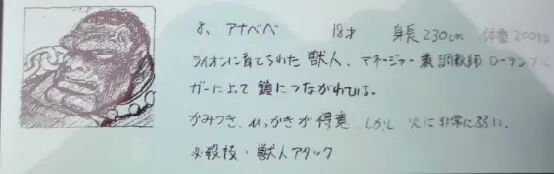 8、アナベベ 18才 身長230cm 体重200kg
ライオンに育てられた獣人、マネージャー兼調教師ローゼンブル
ガーによって鎖につながれている。
かみつき、ひっかきが得意、しかし火に非常に弱い。
必殺技・獣人アタック